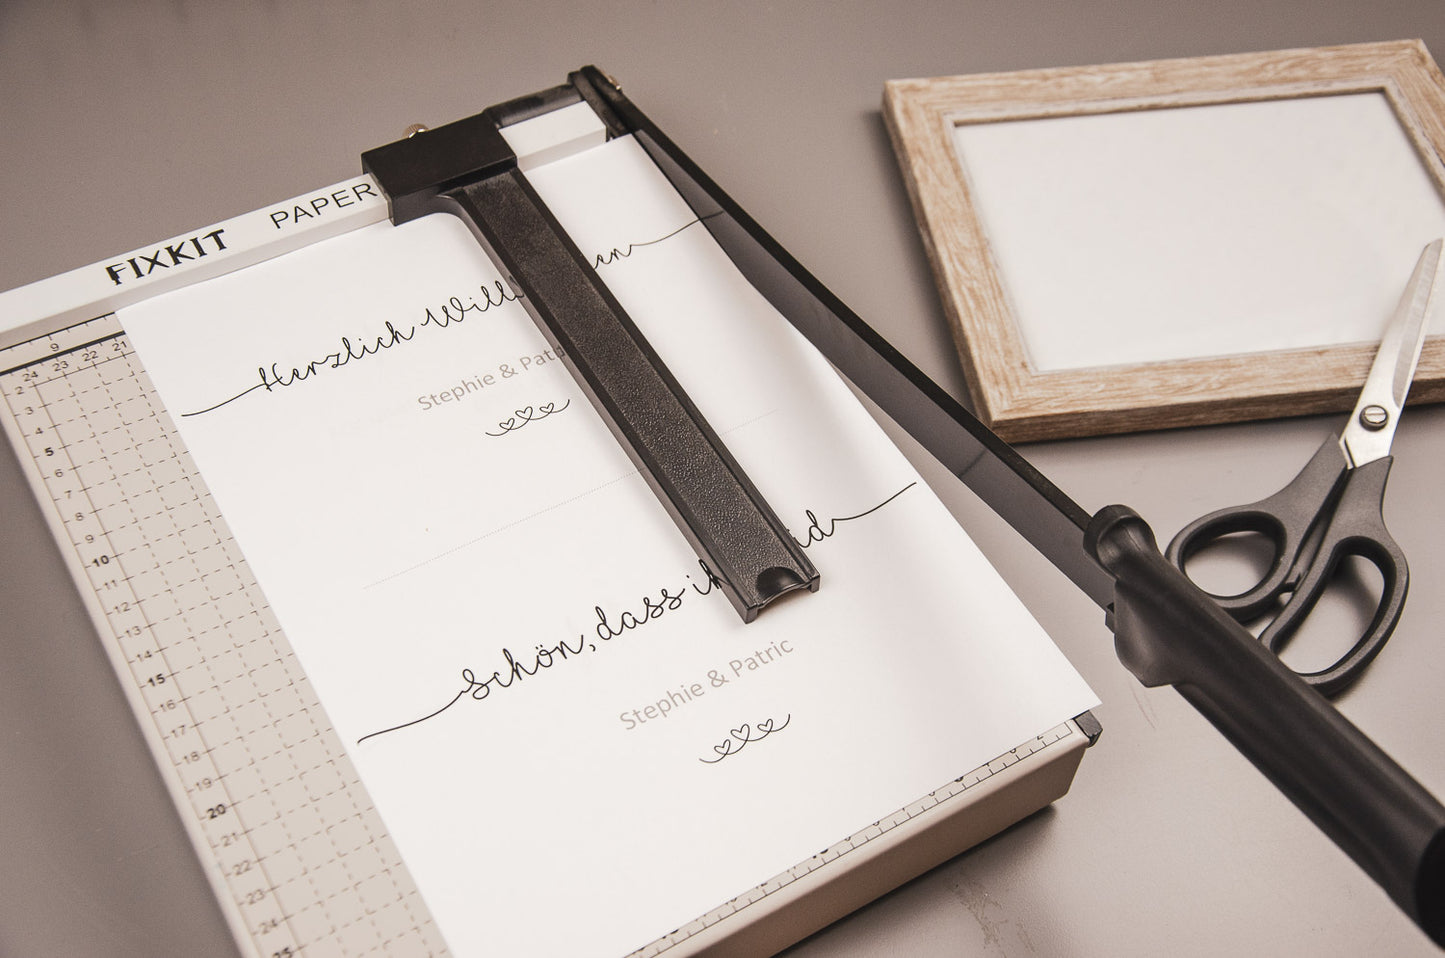 FIXKIT PAPER
9
24 23 22 21
2
3
4
5
6
7
8
9
10
11
12
13
14
15
16
17
18
19
20
21
22
23
24
25
Herzlich Will en
Stephie & Pat
schön, dass ih id
Stephie & Patric